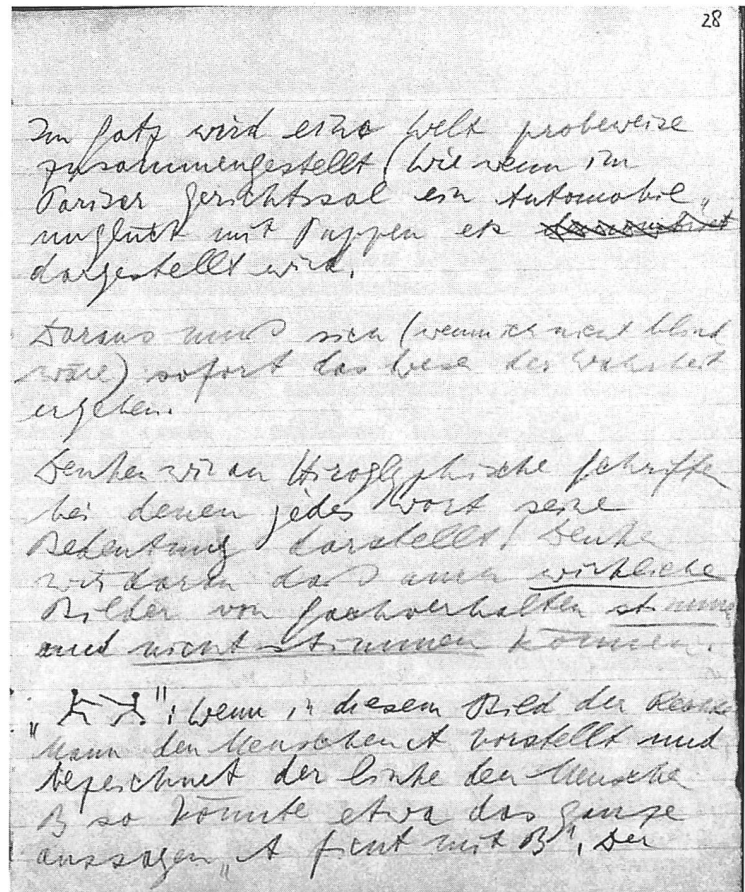 28
Im Satz wird eine Welt probeweise
zusammengestellt. (Wie wenn im
Pariser Gerichtssal ein Automobil„
unglück mit Puppen etc
dargestellt wird.
Daraus muß sich (wenn ich nicht blind
wäre) sofort das Wese der Wahrheit
ergeben.
Denken wir an Hiroglyphische Schriften
bei denen jedes Wort seine
Bedeutung darstellt! Denke
wir daran daß auch wirkliche
Bilder von Sachverhalten stimmen
und nicht stimmen können.
„ ": Wenn in diesem Bild der Rechte
Mann den Menschen A vorstellt und
bezeichnet der linke den Menschen
B so könnte etwa das ganze
aussagen „A ficht mit B". Der